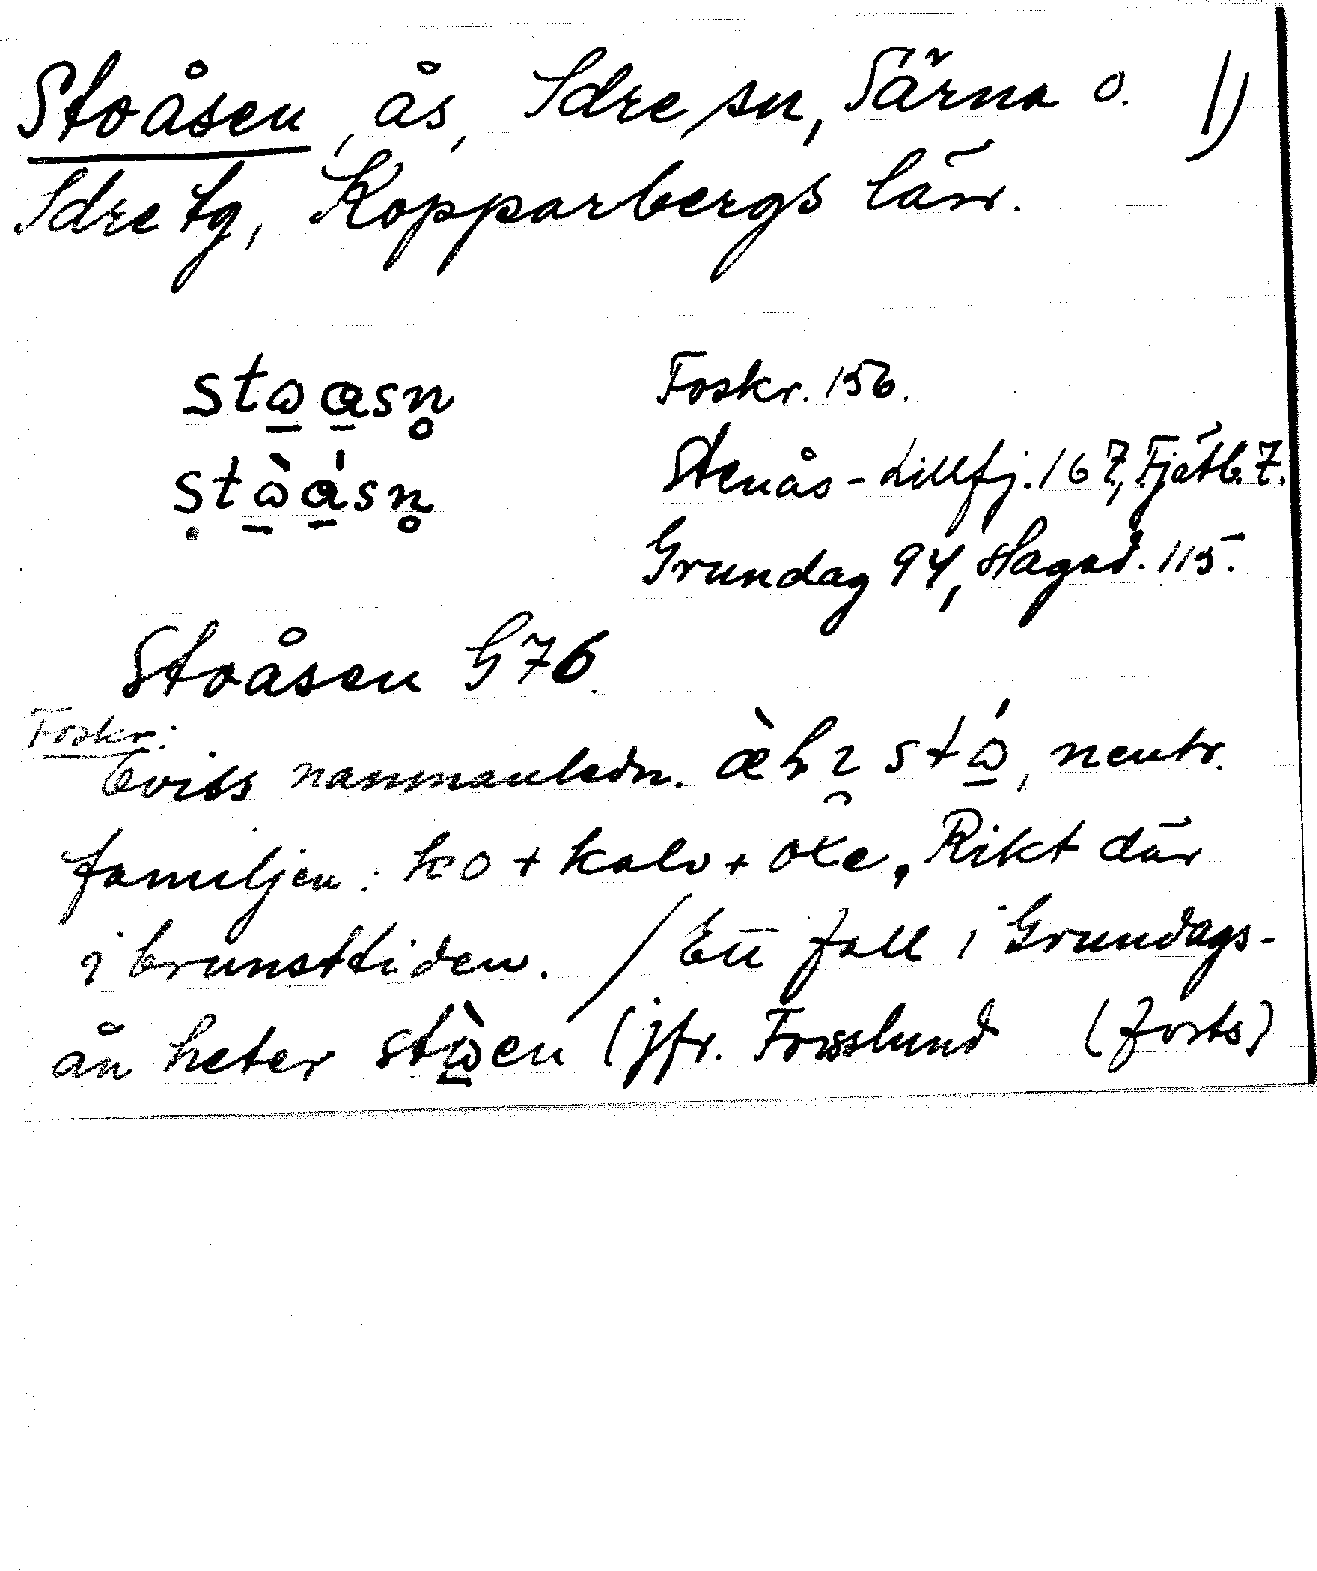 Stoåsen, ås, Idre sn, Särna o. 1)
Idre tg, Kopparbergs län.
stω̲ a̲sn̥ Foskr. 156.
ṣtὼ̲ á̲sn̥ Stenås-Lillfj. 167, Fjätb. 7.
Grundag 94, Hagad. 115.
Stoåsen G76
Foskr:
Eviss namnanledn. stώ̲, neutr.
familjen: ko + kalv + oxe, Rikt där
i brunsttiden. / Ett fall i Grundags-
ån heter stὼ̲en (jfr. Forsslund (forts)